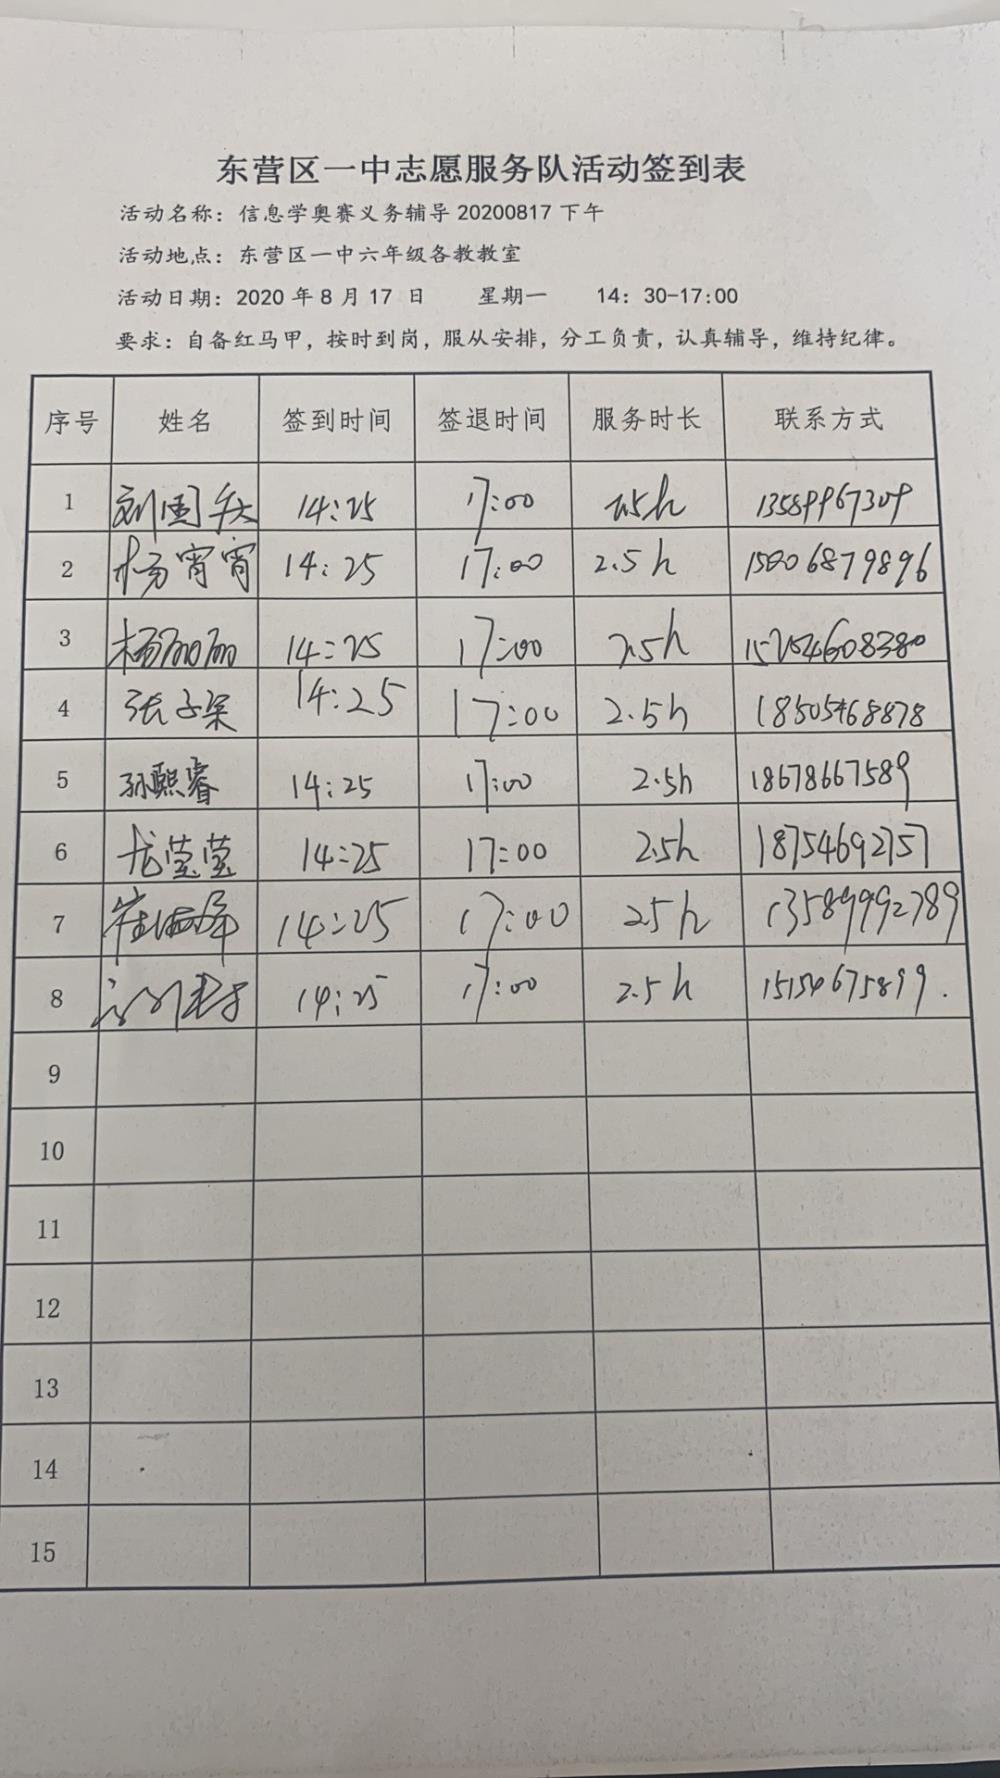 东营区一中志愿服务队活动签到表
活动名称：信息学奥赛义务辅导 20200817 下午
活动地点：东营区一中六年级各教教室
活动日期：2020 年 8 月 17 日 星期一 14：30-17:00
要求：自备红马甲，按时到岗，服从安排，分工负责，认真辅导，维持纪律。
序号 姓名 签到时间 签退时间 服务时长 联系方式
1 刘国 14:25 17:00 2.5h 13589967309
2 杨宵宵 14:25 17:00 2.5h 15806879896
3 杨丽丽 14:25 17:00 2.5h 15254608380
4 张子梁 14:25 17:00 2.5h 18505468878
5 孙熙睿 14:25 17:00 2.5h 18678667589
6 尤莹莹 14:25 17:00 2.5h 18754692757
7 崔 14:25 17:00 2.5h 13589992789
8 14:25 17:00 2.5h 15154675899.
9
10
11
12
13
14
15